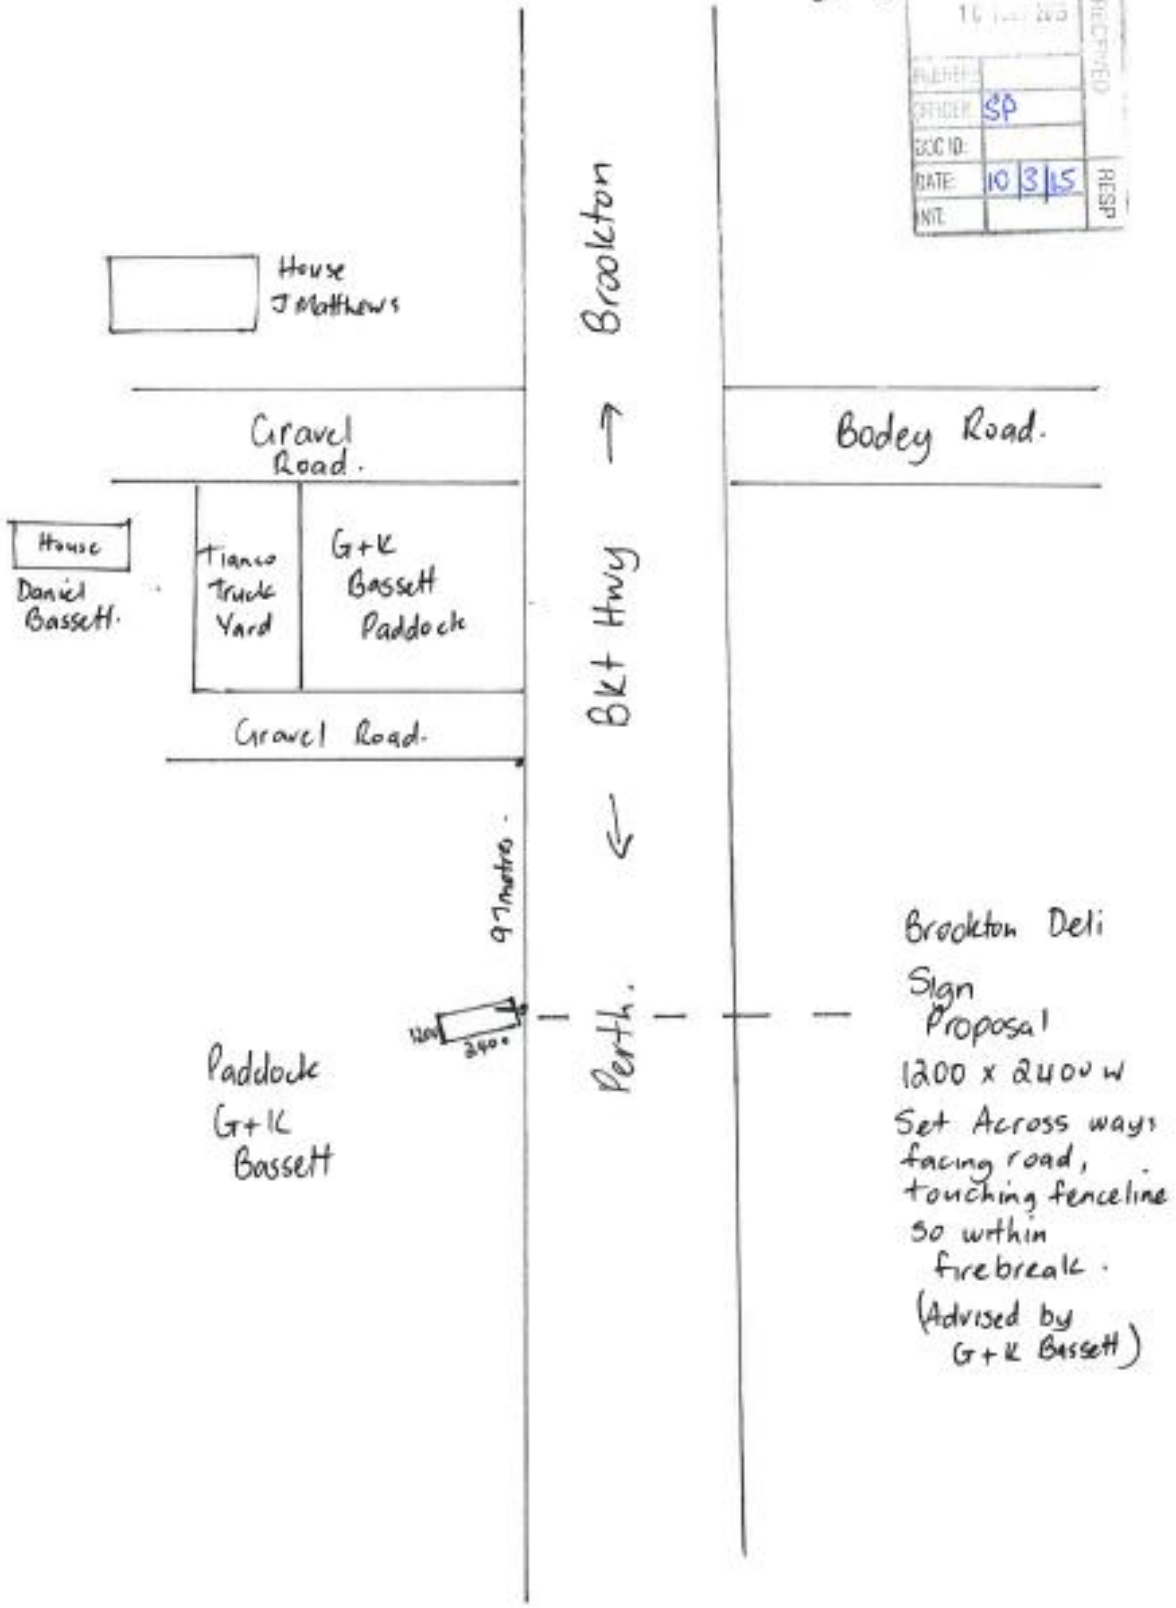 RECEIVED
OFFICER: SP
DOC ID:
DATE: 10 3 15
INIT:
RESP
House
J Matthews
Brookton
Gravel
Road.
Bodey Road.
House
Daniel
Bassett.
Truck
Yard
G+K
Bassett
Paddock
Bkt Hwy
Gravel Road.
97 metres.
1200
2400
Perth.
Paddock
G+K
Bassett
Brookton Deli
Sign
Proposal
1200 x 2400 w
Set Across ways
facing road,
touching fenceline
so within
firebreak.
(Advised by
G+K Bassett)